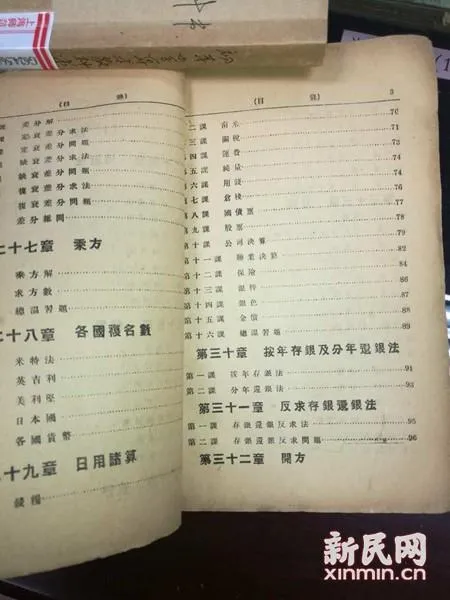 (目 錄)
課 差分解
課 差衰差分求法
課 定衰差分問題
課 缺衰差分求法
課 缺衰差分問題
課 復衰差分求法
課 復衰差分問題
差分雜問
二十七章 乘方
乘方解
求方數
總溫習題
二十八章 各國複名數
米特法
英吉利
美利堅
日本國
各國貨幣
十九章 日用諸算
錢糧
(目 錄) 3
二課 南米 70
三課 關稅 71
四課 運費 73
第五課 純量 74
第六課 用錢 75
第七課 倉棧 76
第八課 國債票 77
第九課 股票 78
第十課 公司決算 79
第十一課 聯業決算 82
第十二課 保險 84
第十三課 銀秤 86
第十四課 銀色 87
第十五課 金價 88
第十六課 總溫習題 89
第三十章 按年存銀及分年還銀法
第一課 按年存銀法 91
第二課 分年還銀法 93
第三十一章 反求存銀還銀法
第一課 存銀還銀反求法 95
第二課 存銀還銀反求問題 96
第三十二章 開方
新民网
xinmin.cn